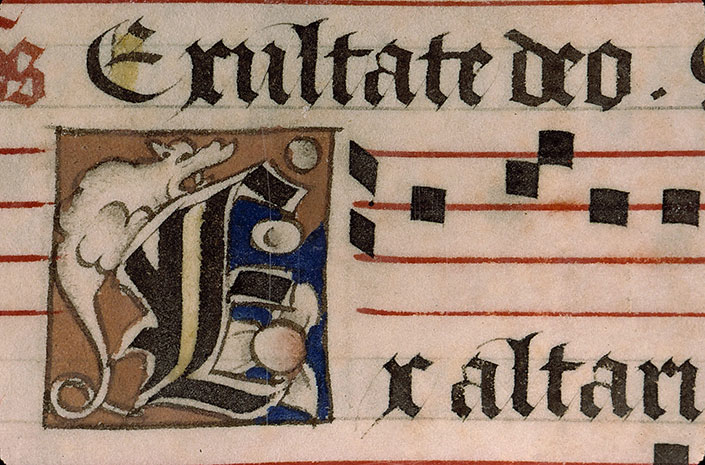 Exultate deo.
Ex altari